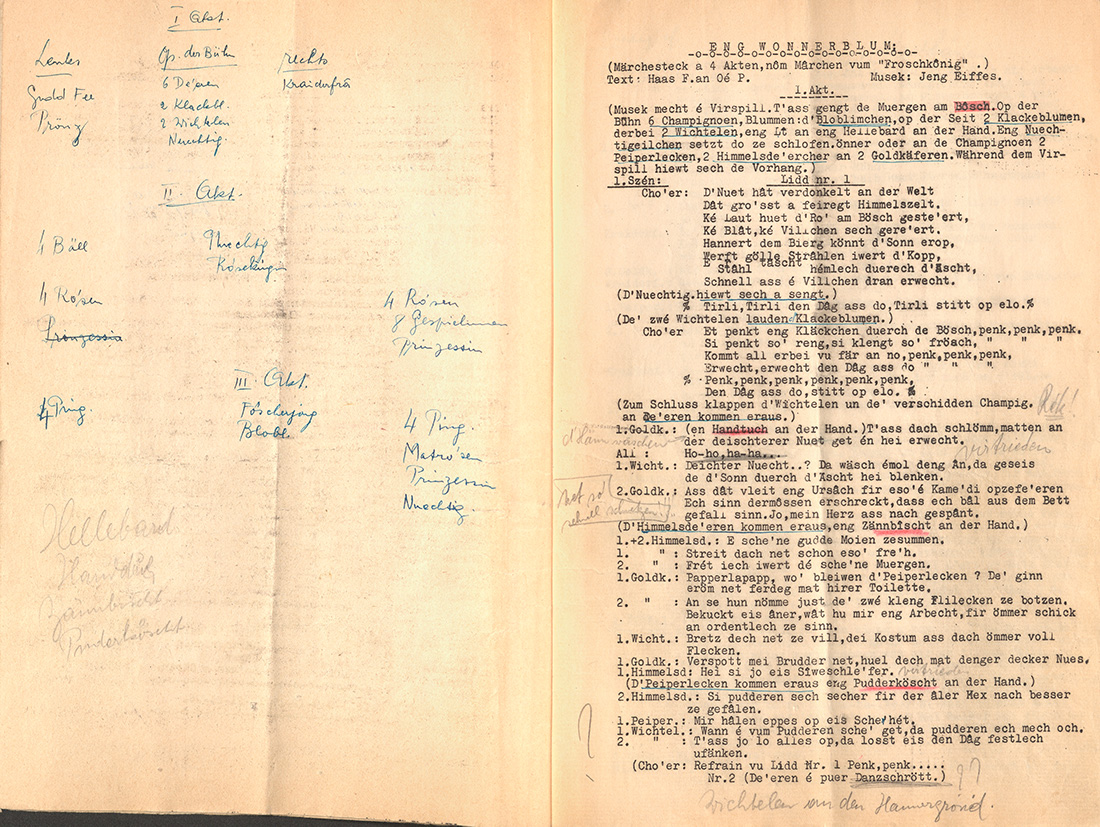 I Akt.
Lenks Op. der Bühn rechts
6 De'eren Kraiderfrä
Gudd Fee 2 Klackbl.
Prënz 2 Wichtelen
Nuechtig.
II Akt.
4 Bäll Nuechtig
4 Ro'sen 4 Ro'sen
8 Gespielinnen
Prinzessin Prinzessin
III Akt.
4 Ping. Föscherjong
Blobl. 4 Ping.
Matro'sen
Prinzessin
Nuechtig.
Hellebard
Handduch
Zännbischt
Puderkëscht
ENG WONNERBLUM:
(Märchesteck a 4 Akten,nôm Märchen vum "Froschkönig" .)
Text: Haas F.an Oé P. Musek: Jeng Eiffes.
1.Akt.
(Musek mecht é Virspill.T'ass gengt de Muergen am Bösch.Op der
Bühn 6 Champignoen,Blummen:d'Bloblimchen,op der Seit 2 Klackeblumen,
derbei 2 Wichtelen,eng Lt an eng Hellebard an der Hand.Eng Nuech-
tigeilchen setzt do ze schlofen.önner oder an de Champignoen 2
Peiperlecken,2 Himmelsde'ercher an 2 Goldkäferen.Während dem Vir-
spill hiewt sech de Vorhang.)
1.Szén: Lidd nr. 1
Cho'er: D'Nuet hât verdonkelt an der Welt
Dât gro'sst a feiregt Himmelszelt.
Ké Laut huet d'Ro' am Bösch geste'ert,
Ké Blât,ké Villchen sech gere'ert.
Hannert dem Bierg könnt d'Sonn erop,
Werft gölle Strâhlen iwert d'Kopp,
E Stâhl tascht hémlech duerech d'Äscht,
Schnell ass é Villchen dran erwecht.
(D'Nuechtig.hiewt sech a sengt.)
% Tirli,Tirli den Dâg ass do,Tirli stitt op elo.%
(De' zwé Wichtelen lauden Klackeblumen.)
Cho'er Et penkt eng Kläckchen duerch de Bösch,penk,penk,penk.
Si penkt so' reng,si klengt so' frösch, " " "
Kommt all erbei vu fär an no,penk,penk,penk,
Erwecht,erwecht den Dâg ass do " " "
% Penk,penk,penk,penk,penk,penk,
Den Dâg ass do,stitt op elo. %
(Zum Schluss klappen d'Wichtelen un de' verschidden Champig.
an De'eren kommen eraus.)
1.Goldk.: (en Handtuch an der Hand.)T'ass dach schlömm,matten an
der deischterer Nuet get én hei erwecht.
All : Ho-ho,ha-ha...
vertrieden
1.Wicht.: Deichter Nuecht..? Da wäsch émol deng An,da geseis
de d'Sonn duerch d'Äscht hei blenken.
net so
2.Goldk.: Ass dât vleit eng Ursâch fir eso'é Kame'di opzefe'eren
Ech sinn dermôssen erschreckt,dass ech bâl aus dem Bett
gefall sinn.Jo,mein Herz ass nach gespânt.
(D'Himmelsde'eren kommen eraus,eng Zännbîscht an der Hand.)
1.+2.Himmelsd.: E sche'ne gudde Moien zesummen.
1. " : Streit dach net schon eso' fre'h.
2. " : Frét iech iwert dé sche'ne Muergen.
1.Goldk.: Papperlapapp, wo' bleiwen d'Peiperlecken ? De' ginn
eröm net ferdeg mat hirer Toilette.
2. " : An se hun nömme just de' zwé kleng Flilecken ze botzen.
Bekuckt eis âner,wât hu mir eng Arbecht,fir ömmer schick
an ordentlech ze sinn.
1.Wicht.: Bretz dech net ze vill,dei Kostum ass dach ömmer voll
Flecken.
1.Goldk.: Verspott mei Brudder net,huel dech mat denger decker Nues.
1.Himmelsd: Hei si jo eis Sîweschle'fer. vertrieden
(D'Peiperlecken kommen eraus eng Pudderköscht an der Hand.)
2.Himmelsd.: Si pudderen sech secher fir der âler Hex nach besser
ze gefâlen.
1.Peiper.: Mir hâlen eppes op eis Sche'hét.
1.Wichtel.: Wann é vum Pudderen sche' get,da pudderen ech mech och.
2. " : T'ass jo lo alles op,da losst eis den Dâg festlech
ufänken.
(Cho'er: Refrain vu Lidd Nr. 1 Penk,penk.....
Nr.2 (De'eren é puer Danzschrött.) ??
Wichtelen an den Hannergrond.